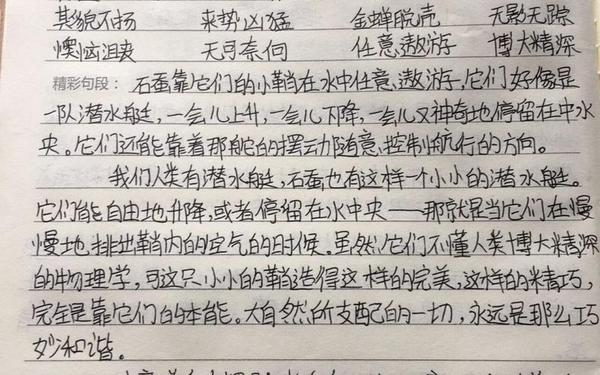 其貌不扬 来势凶猛 金蝉脱壳 无影无踪
懊恼沮丧 无可奈何 任意遨游 博大精深
精彩句段: 石蚕靠它们的小鞘在水中任意遨游,它们好像是
一队潜水艇,一会儿上升,一会儿下降,一会儿又神奇地停留在中水
央。它们还能靠着那舵的摆动随意控制航行的方向。
我们人类有潜水艇,石蚕也有这样一个小小的潜水艇。
它们能自由地升降,或者停留在水中央——那就是当它们在慢
慢地排出鞘内的空气的时候。虽然它们不懂人类博大精深
的物理学,可这只小小的鞘造得这样的完美,这样的精巧,
完全是靠它们的本能。大自然所支配的一切,永远是那么巧
妙和谐。